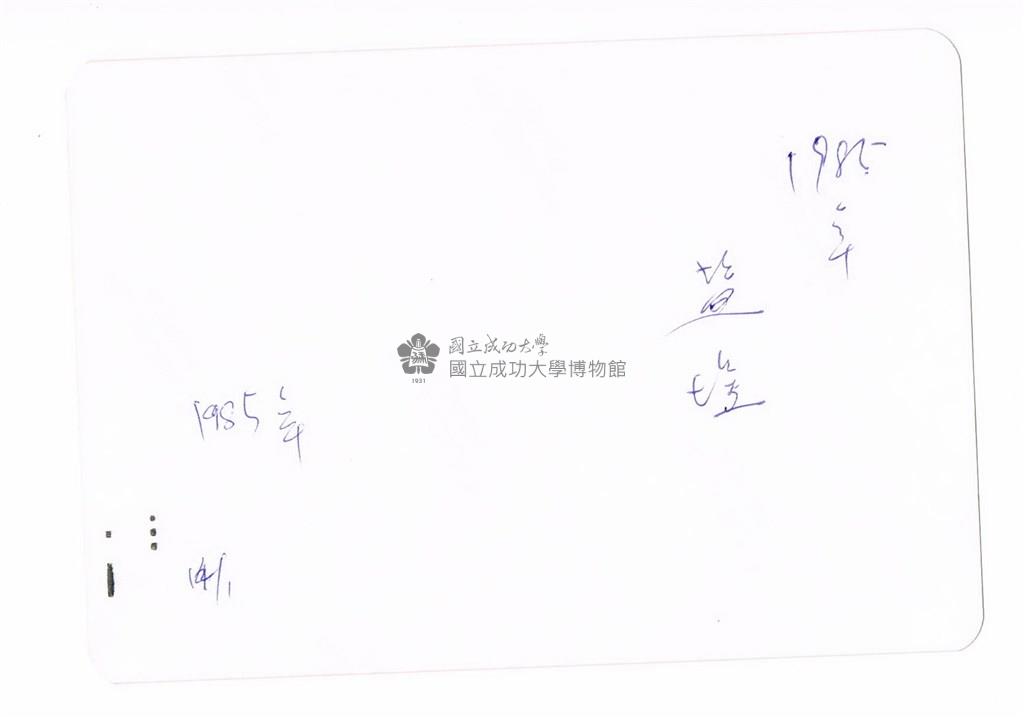 1985
年
盐
埕
國立成功大學
國立成功大學博物館
1931
1985年